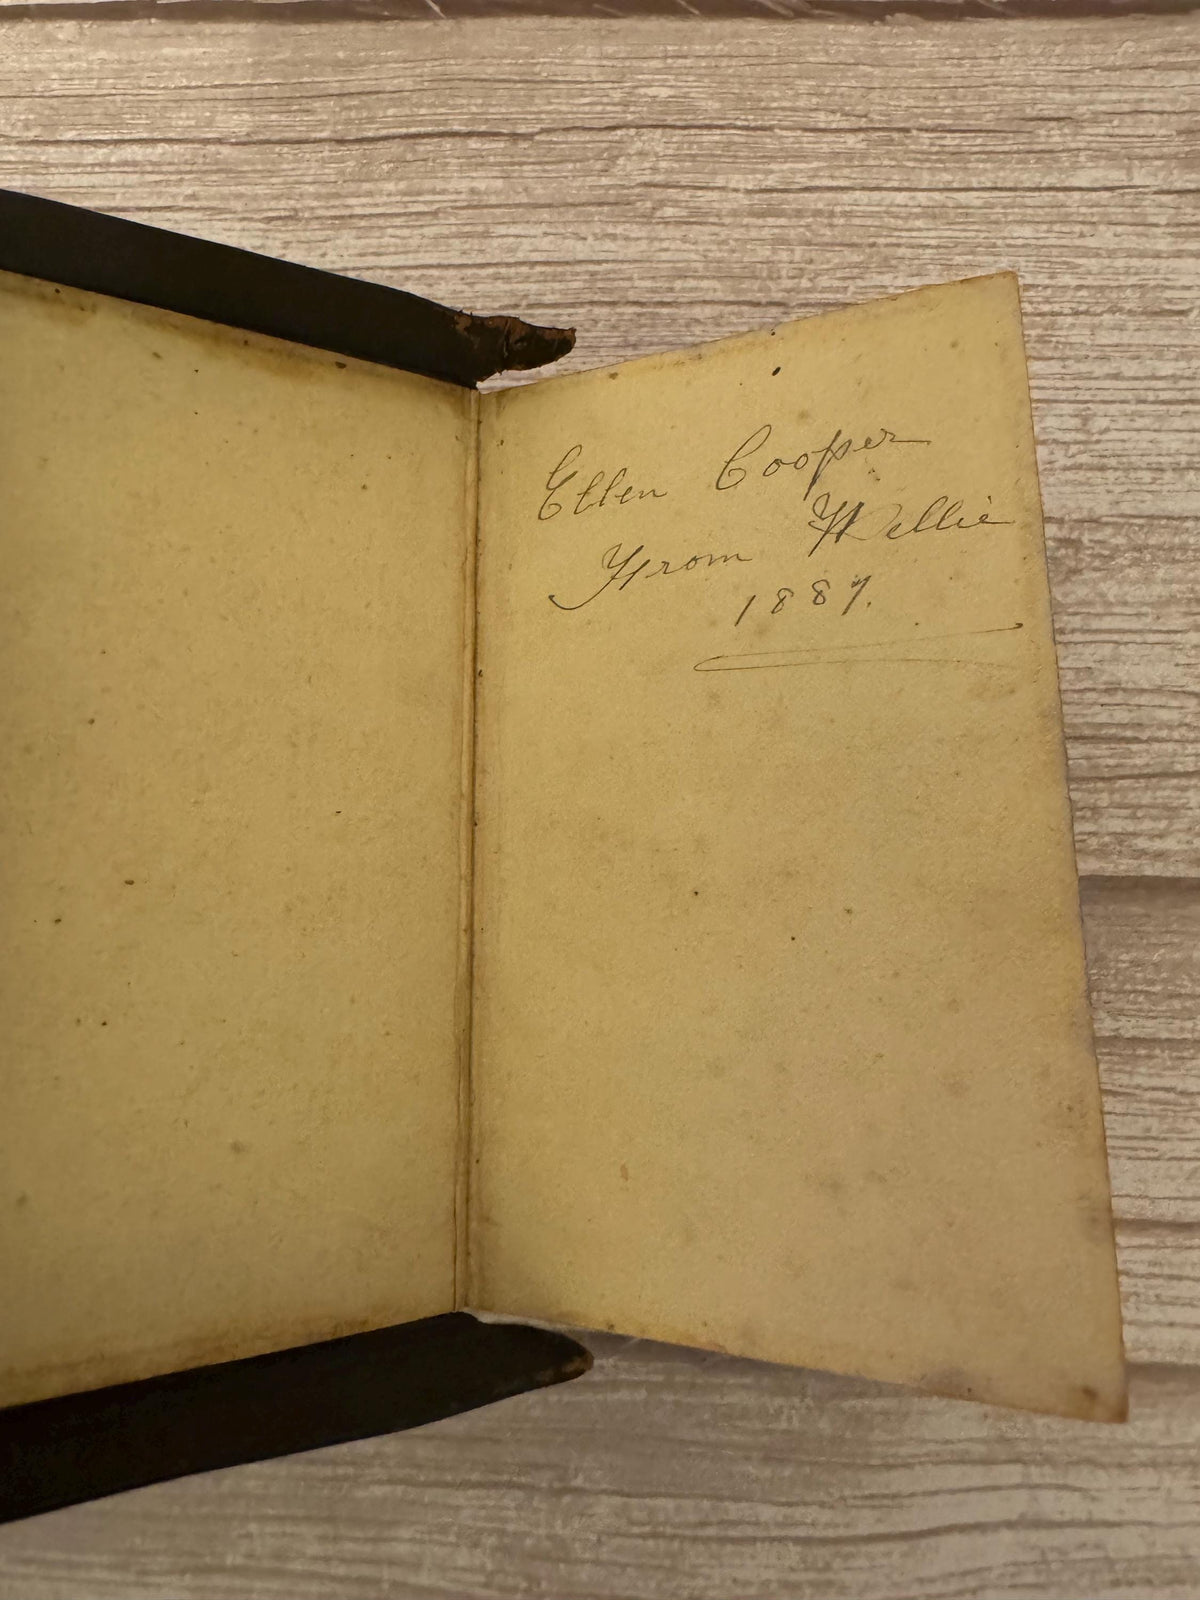 Ellen Cooper
From Nellie
1887.